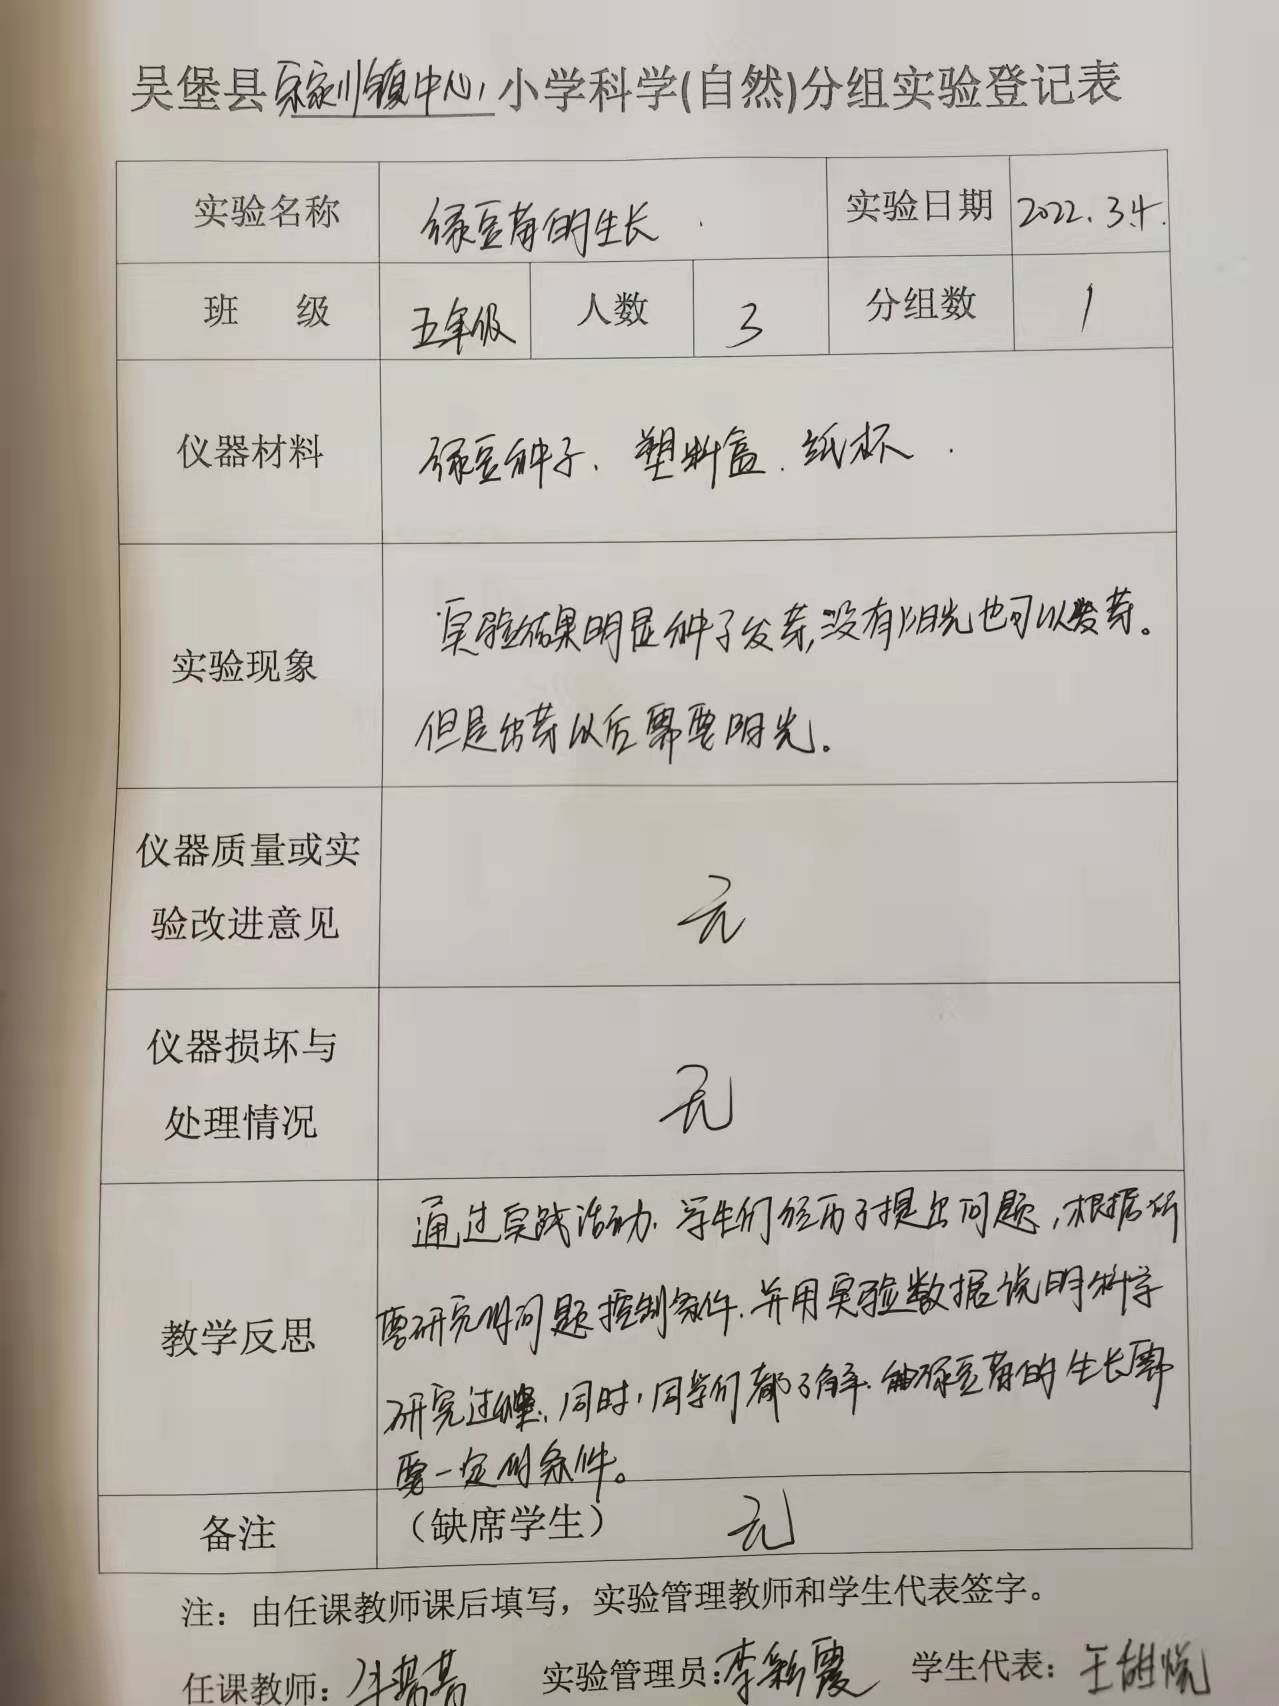 吴堡县宋家川镇中心小学科学(自然)分组实验登记表
实验名称 绿豆芽的生长 实验日期 2022.3.4.
班 级 五年级 人数 3 分组数 1
仪器材料 绿豆种子、塑料盒、纸杯
实验现象
实验结果明显种子发芽,没有阳光也可以发芽。
但是出芽以后需要阳光。
仪器质量或实
验改进意见
无
仪器损坏与
处理情况
无
教学反思
通过实践活动,学生们经历了提出问题,根据所
要研究的问题控制条件,并用实验数据说明科学
研究过程,同时,同学们都了解 绿豆芽的生长需
要一定的条件。
备注 (缺席学生) 无
注:由任课教师课后填写,实验管理教师和学生代表签字。
任课教师: 实验管理员:李彩霞 学生代表:王甜悦